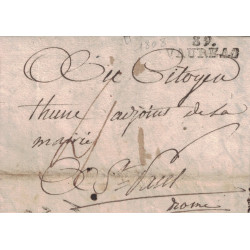 89.
VAUREAS
Au Citoyen
thune adjoint de la
mairie
A St. Paul
Drome